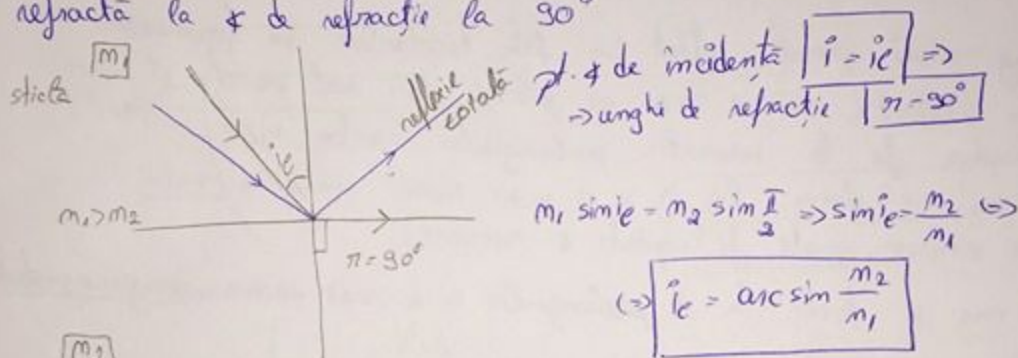 refractă la ∢ de refracție la 90°
n₁
sticlă
reflexie
totală
iₑ
n₁>n₂
r=90°
n₂
pt. ∢ de incidență i = iₑ =>
-> unghi de refracție r = 90°
n₁ sin iₑ = n₂ sin π/2 => sin iₑ = n₂/n₁ <=>
(=>) iₑ = arc sin n₂/n₁